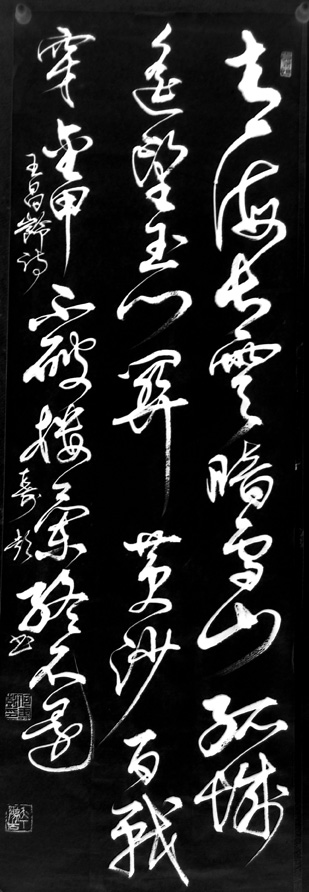 青海长云暗雪山孤城
遥望玉门关黄沙百战
穿金甲不破楼兰终不还
王昌龄诗
喜彭书